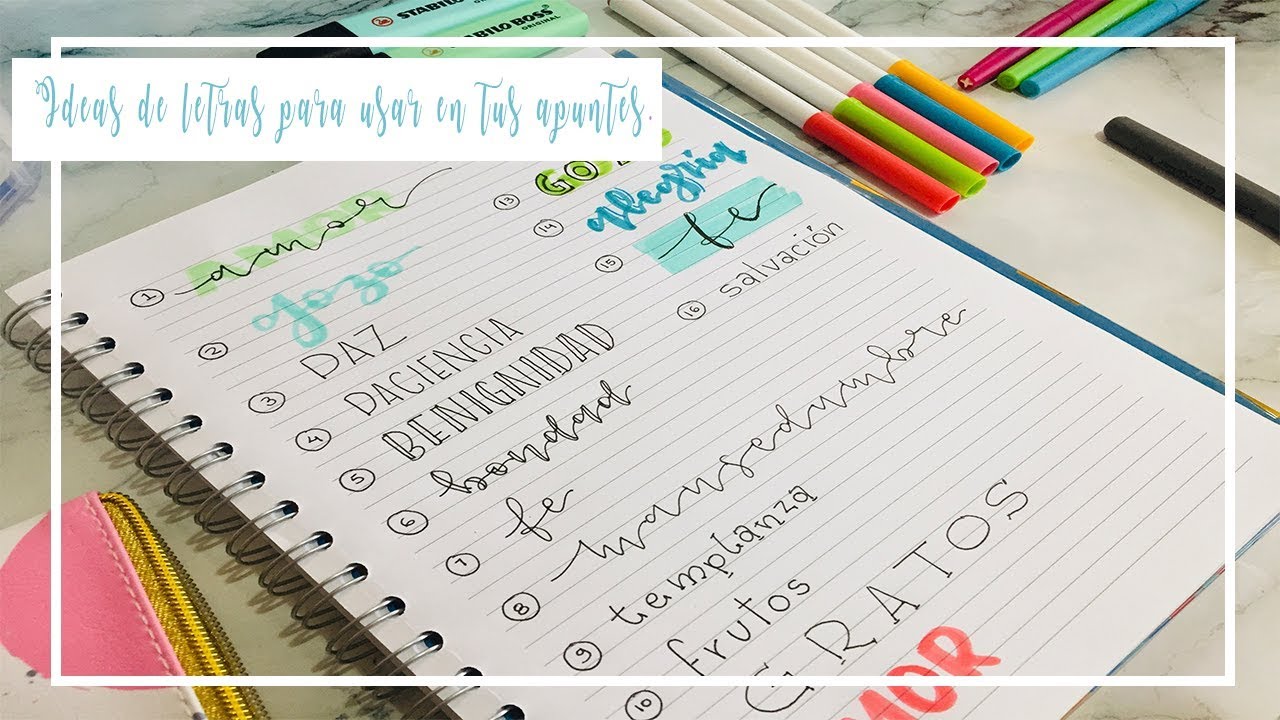 STABILO
STABILO BOSS
ORIGINAL
Ideas de letras para usar en tus apuntes.
1 AMOR amor
2 gozo
3 PAZ
4 PACIENCIA
5 BENIGNIDAD
6 bondad
7 fe
8 mansedumbre
9 templanza
10 frutos
GRATOS
MOR
13 GO
14 alegría
15 fe
16 salvación